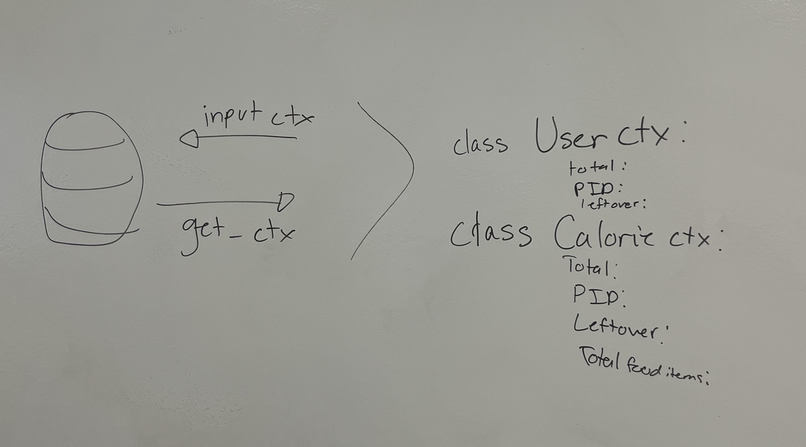 input ctx
get_ctx
class User ctx:
total:
PID:
leftover:
class Caloric ctx:
Total:
PID:
Leftover:
Total food items: